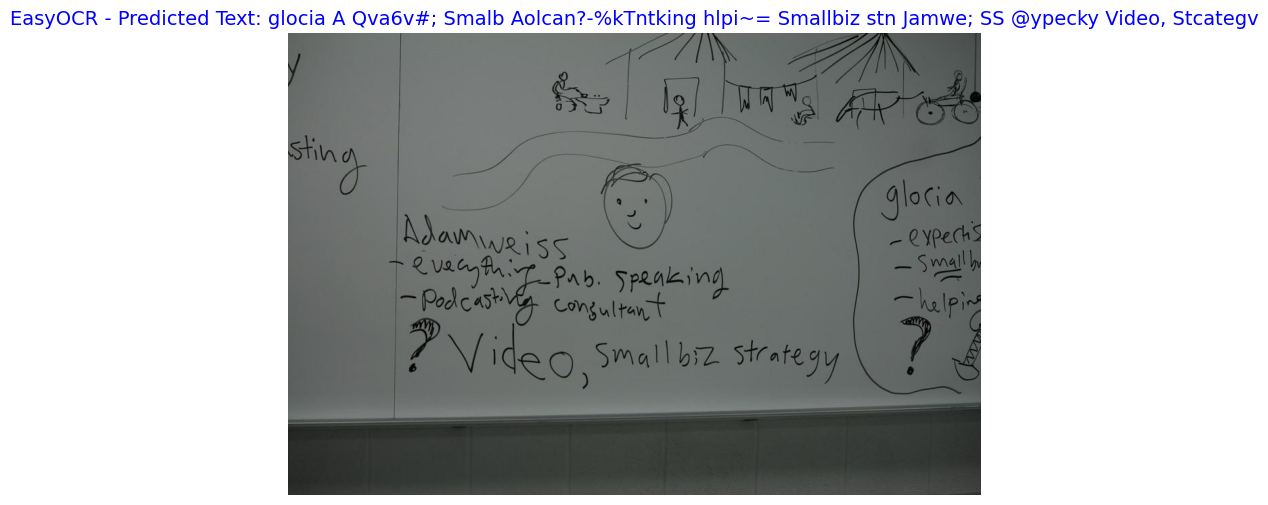 EasyOCR - Predicted Text: glocia A Qva6v#; Smalb Aolcan?-%kTntking hlpi~= Smallbiz stn Jamwe; SS @ypecky Video, Stcategv
y
sting
Adamweiss
- everything - Pub. speaking
- Podcasting consultant
? Video, smallbiz strategy
glocia
- expertis
- smallbi
- helping
?